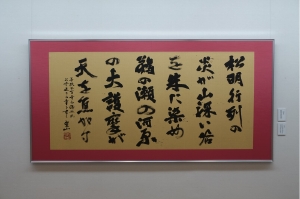 松明行列の
炎が山深い谷
を朱に染め
鞍の瀬の河原
の大護摩が
天を焦がす